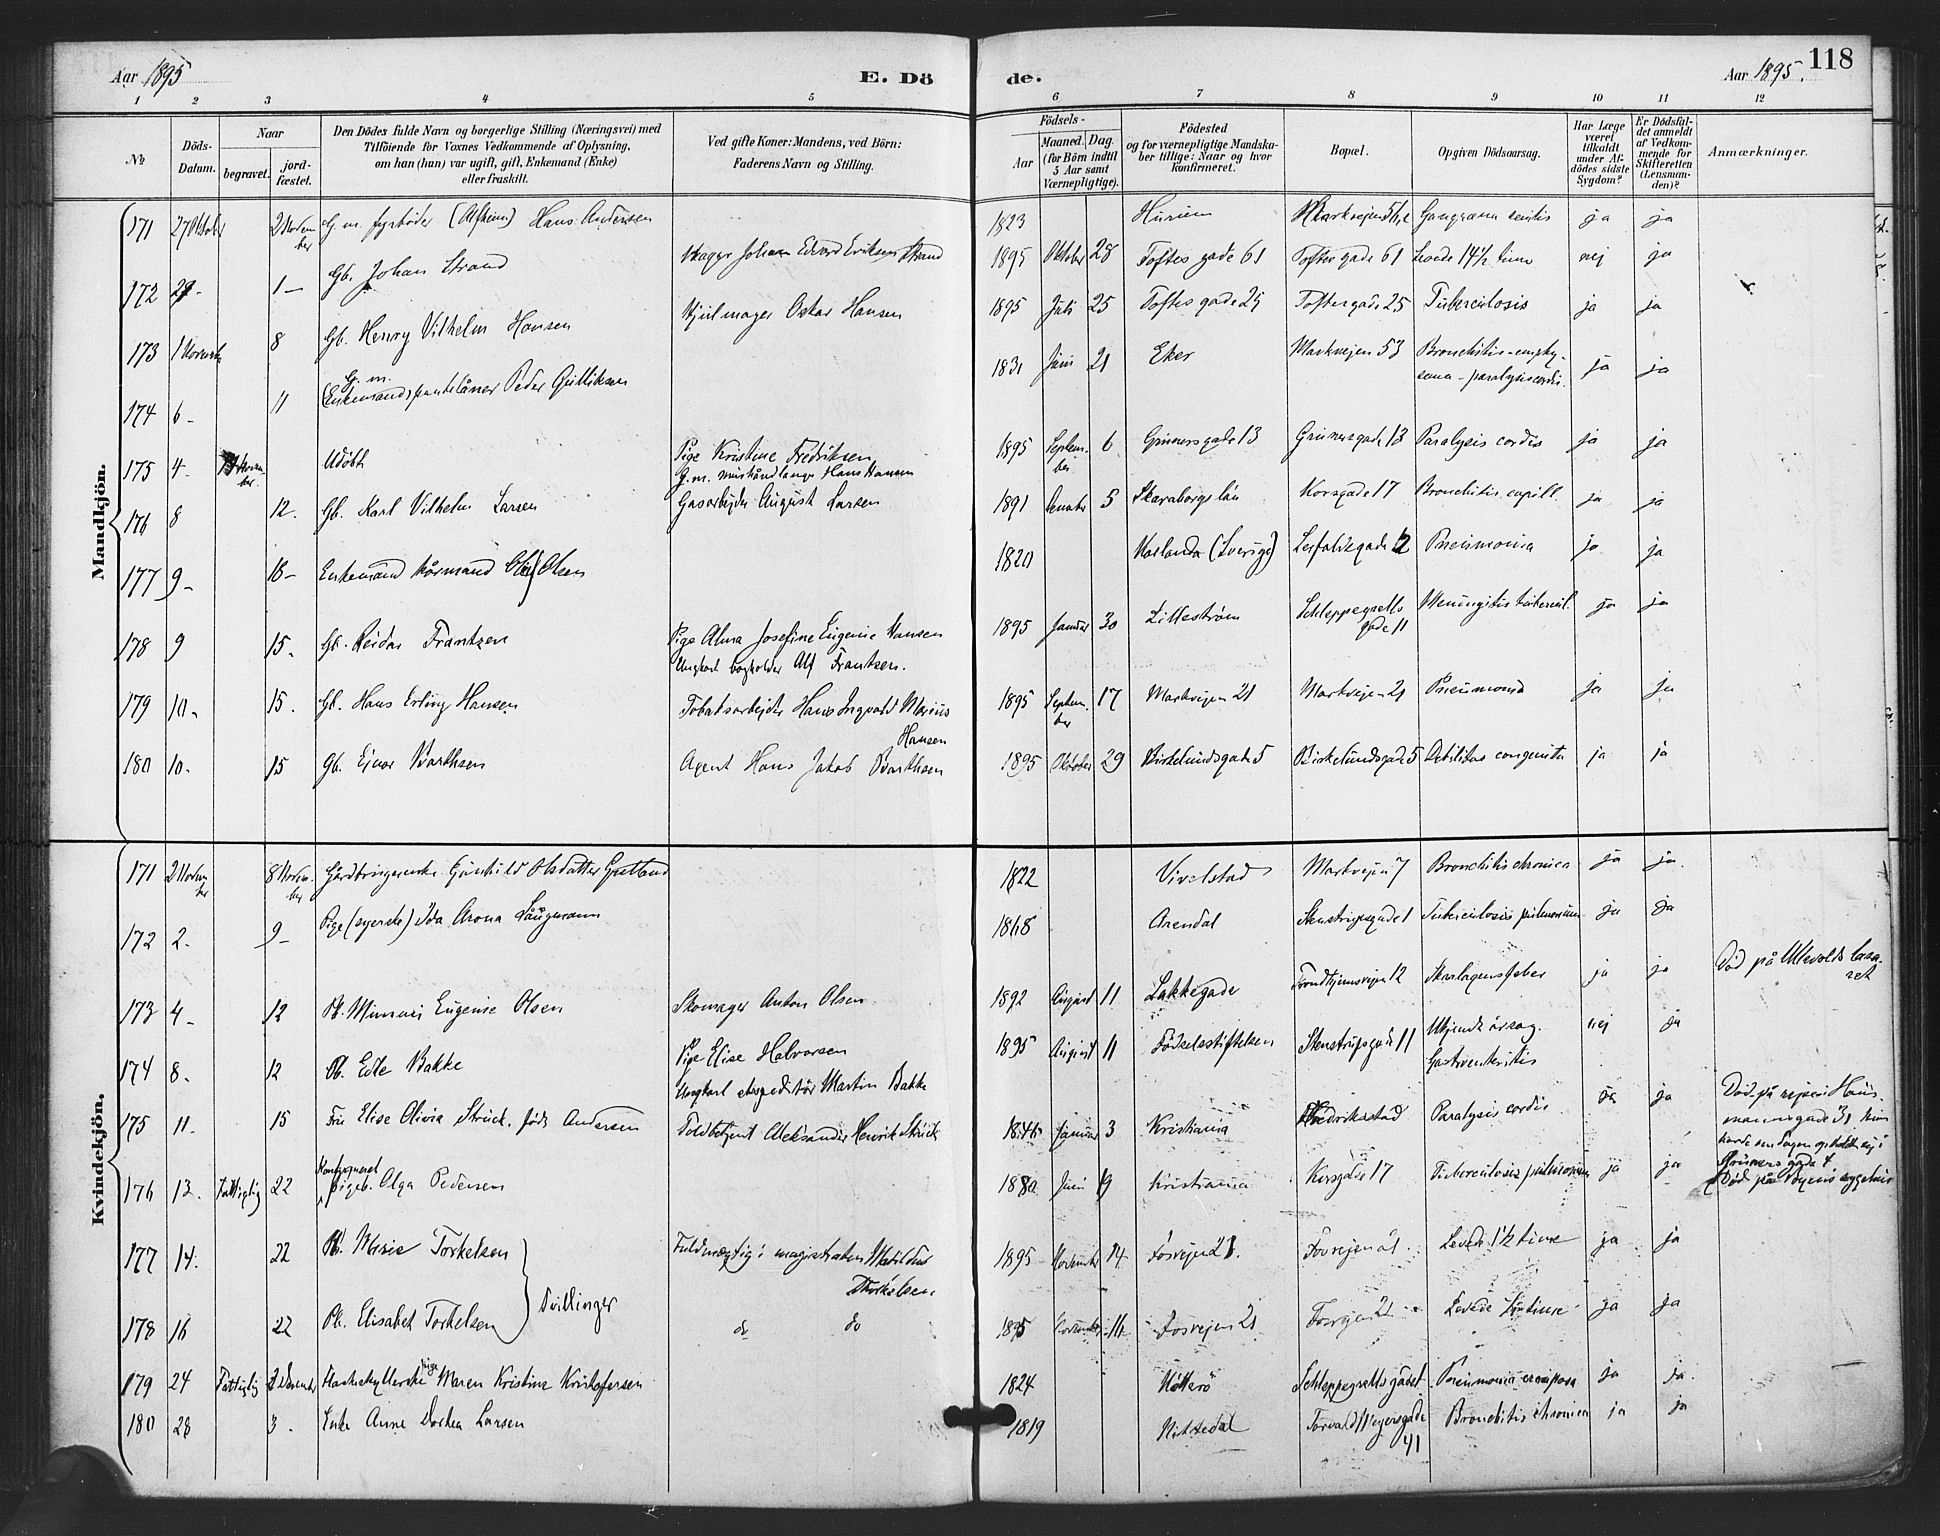 Aar 1895
E. Dö
de.
Aar 1895.
118
1 2 3 4 5 6 7 8 9 10 11 12
No
Döds-
Datum.
Naar
begravet.
jord-
fæstet.
Den Dödes fulde Navn og borgerlige Stilling (Næringsvei) med
Tilföiende for Voxnes Vedkommende af Oplysning,
om han (hun) var ugift, gift, Enkemand (Enke)
eller fraskilt.
Ved gifte Koner: Mandens, ved Börn:
Faderens Navn og Stilling.
Födsels-
Aar
Maaned. Dag.
(for Börn indtil
5 Aar samt
Værnepligtige).
Födested
og for værnepligtige Mandska-
ber tillige: Naar og hvor
konfirmeret.
Bopæl.
Opgiven Dödsaarsag.
Har Læge
været
tilkaldt
under Af-
dödes sidste
Sygdom?
Er Dödsfal-
det anmeldt
af Vedkom-
mende for
Skifteretten
(Lensman-
den)?
Anmærkninger.
Mandkjön.
171 27 Oktober 2 Novem-
ber G. m. fyrböder Hans Andersen 1823 Hurum Markveien ja ja
172 29 - 1 - Gb. Johan Strand Johan Edvard Eriksen Strand 1895 Oktober 28 Toftes gade 61 Toftes gade 61 Levede 14½ time nej ja
173 1 Novemb. 8 Gb. Henry Vilhelm Hansen Hjulmager Oskar Hansen 1895 Juli 25 Toftes gade 25 Toftes gade 25 Tuberculosis ja ja
174 6 - 11 G. m.
Enkemand Peder Gulliksen 1831 Juni 21 Eker Markveien 53 Bronchitis - emphy-
sema - paralysis cordis. ja ja
175 4 - Udöbt Pige Kristine Fredriksen
G. m. murhåndlanger Hans Hansen 1895 Septem-
ber 6 Grünersgade 13 Grünersgade 13 Paralysis cordis ja ja
176 8 12. Gb. Karl Vilhelm Larsen Gasarbejder August Larsen 1891 5 Skaraborgs län Korsgade 17 Bronchitis capill. ja ja
177 9 - 18 - Enkemand Olsen 1820 (Sverige) Pneumonia ja ja
178 9 15 - Gb. Reidar Frantzen Pige Alma Josefine Eugenie Hansen
Ungkarl bogholder Alf Frantzen. 1895 Januar 30 Lilleström Schleppegrells
gade 11 Meningitis tubercul. ja ja
179 10 - 15. Gb. Hans Erling Hansen Tobaksarbejder Hans Ingvald Marius
Hansen 1895 Septem-
ber 17 Markvejen 21 Markvejen 21 Pneumonia ja ja
180 10. 15 Gb. Ejnar Barthsen Agent Hans Jakob Barthsen 1895 Oktober 29 Birkelundsgade 5 Birkelundsgade 5 Debilitas congenita ja ja
Kvindekjön.
171 2 Novem-
ber 8 Novem-
ber Gunhild Olsdatter 1822 Markvejen 7 Bronchitis chronica ja ja.
172 2. 9 - Pige (syerske) Ida 1868 Arendal Stenstrupsgade 1 Tuberculosis pulmonum ja ja
173 4 - 12 Pb. Eugenie Olsen Skomager Anton Olsen 1892 August 11 Lakkegade Trondhjemsvejen 12 Skarlagensfeber ja ja Död på Ullevolds lasa-
ret
174 8. 12 Pb. Edle Bakke Pige Elise Halvorsen
Ungkarl ekspeditör Martin Bakke 1895 August 11 Födselsstiftelsen Stenstrupsgade 11 Ukjendt årsag.
Gastroenteritis nej ja
175 11. 15 Fru Elise Olivia Struck, född Andersen Toldbetjent Aleksander Henrik Struck 1846 Januar 3 Kristiania Fredrikstad Paralysis cordis ja ja Död på rejsen
gade 31
Grüners gade 4
176 13. Fattiglig 22
pigeb. Olga Pedersen 1880 Juni 9 Kristiania Korsgade 17 Tuberculosis pulmonum ja ja Död på sygehus
177 14. 22 Pb. Marie Torkelsen Fuldmægtig i magistraten
Thorkelsen 1895 November 14 Fosvejen 21. Fosvejen 21. Levede 1½ time ja ja
Tvillinger
178 16 22 Pb. Elisabet Torkelsen do do 1895 November 14 Fosvejen 21 Fosvejen 21 Levede ja ja
179 24 Fattiglig 2 December pige Maren Kristine Kristofersen 1824 Nötterö Schleppegrells gade Pneumonia ja ja.
180 28 3. Enke Anne Dorthea Larsen 1819 Nittedal Torvald Meyersgade
41 Bronchitis chronica ja ja